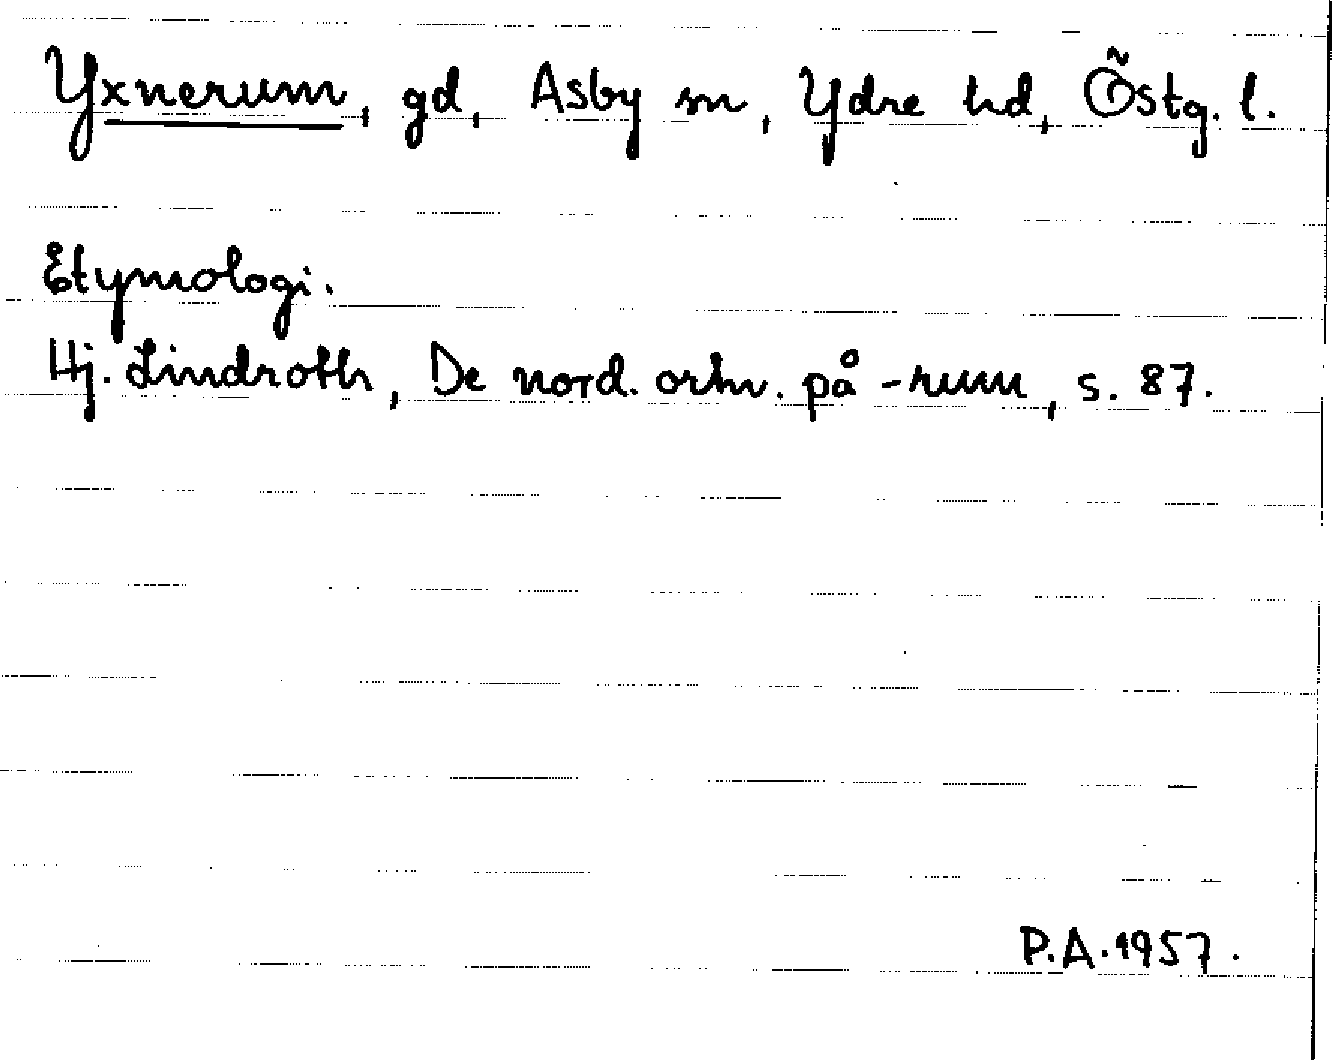 Yxnerum, gd, Asby sn, Ydre hd, Östg. l.
Etymologi.
Hj. Lindroth, De nord. ortn. på -rum, s. 87.
P.A. 1957.